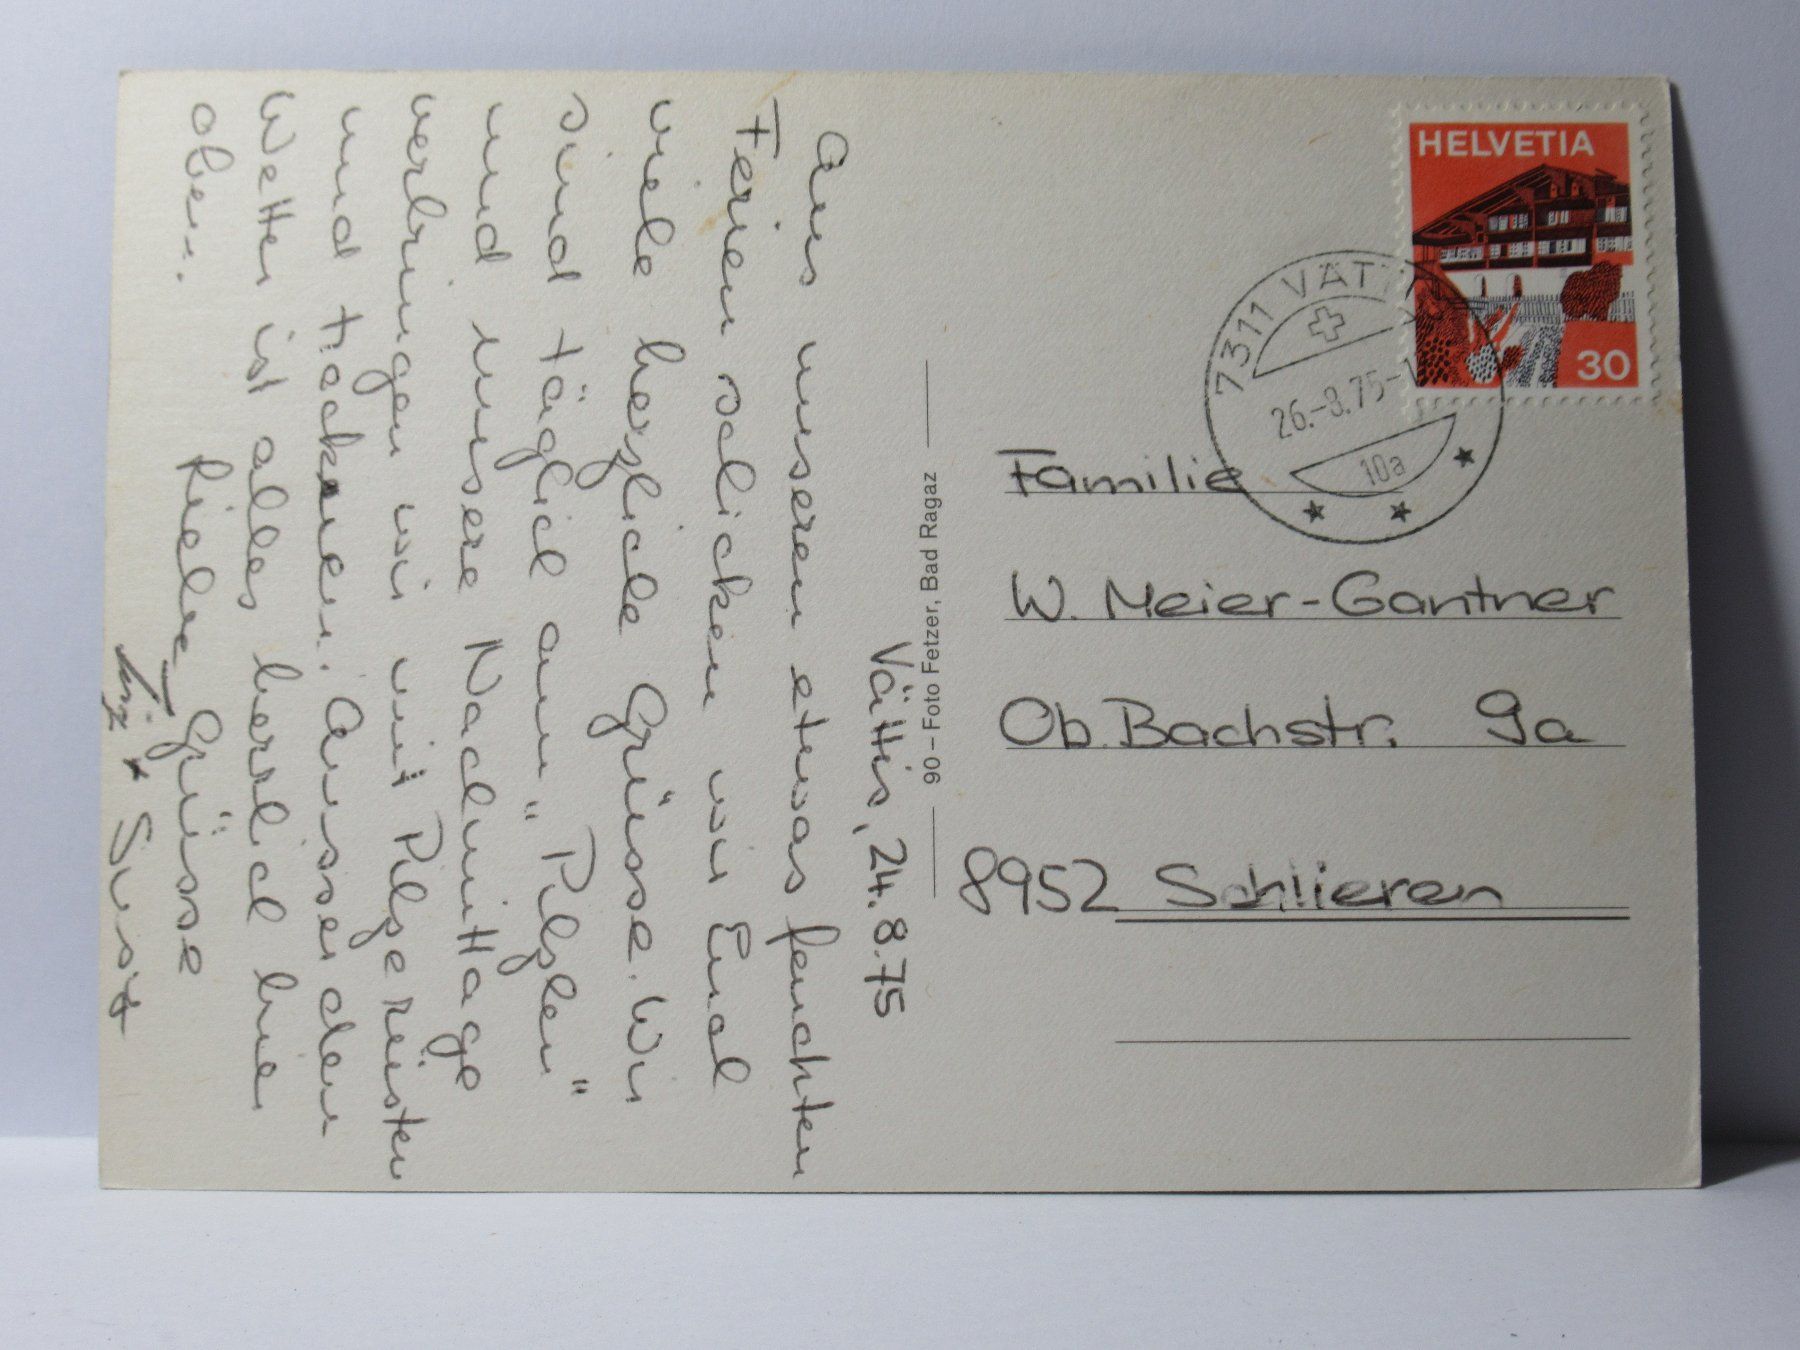 Vättis, 24.8.75
Aus unseren etwas feuchten
Ferien schicken wir Euch
viele herzliche Grüsse. Wir
sind täglich am "Pilzlen"
und unsere Nachmittage
verbringen wir mit Pilze rüsten
und trocknen. Ausser dem
Wetter ist alles herrlich hier
oben.
Liebe Grüsse
+ Susi
90 – Foto Fetzer, Bad Ragaz
HELVETIA
30
7311 VÄTTIS
26.-8.75-1
10a
Familie
W. Meier-Gantner
Ob. Bachstr. 9a
8952 Schlieren